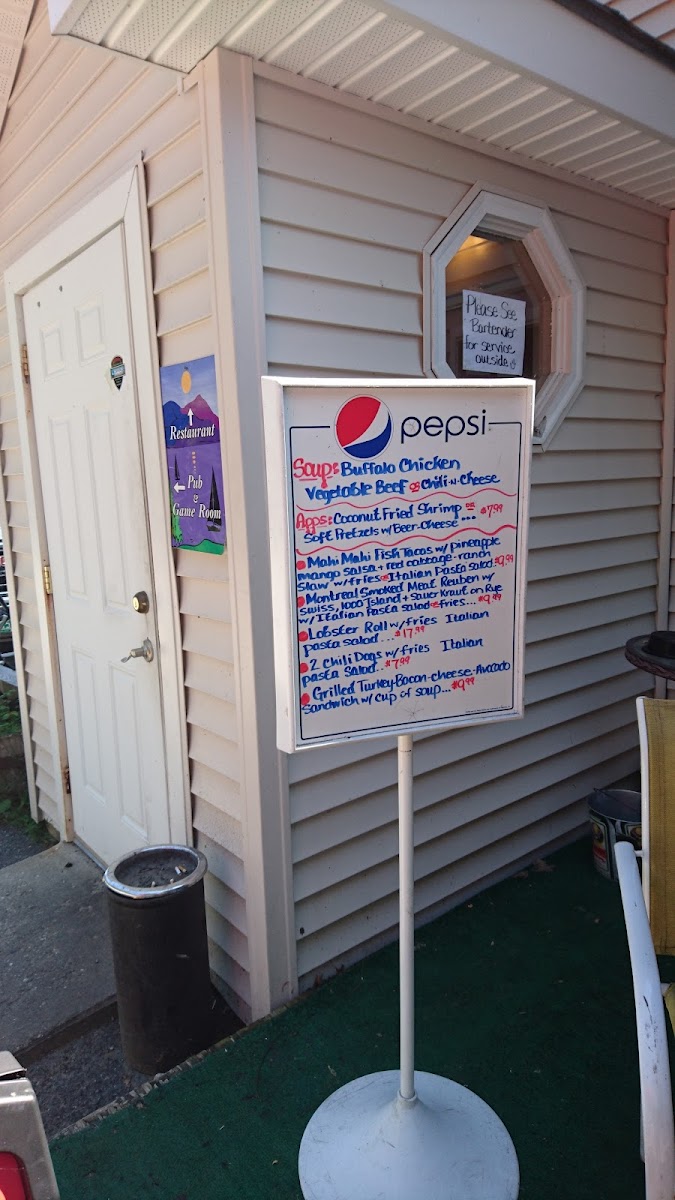 Please See
Bartender
for service
outside
Restaurant
Pub
&
Game Room
pepsi
Soups: Buffalo Chicken
Vegetable Beef or Chili-N-Cheese
Apps: Coconut Fried Shrimp or
Soft Pretzels w/Beer-Cheese ... $7.99
Mahi Mahi Fish Tacos w/ pineapple
mango salsa + red cabbage-ranch
slaw w/fries or Italian Pasta salad $9.99
Montreal Smoked Meat Reuben w/
swiss, 1000 Island + Sauerkraut on Rye
w/ Italian Pasta salad or fries... $9.99
Lobster Roll w/fries Italian
pasta salad... $17.99
2 Chili Dogs w/fries Italian
pasta salad.. $7.99
Grilled Turkey-Bacon-cheese-Avocado
Sandwich w/ cup of soup... $9.99